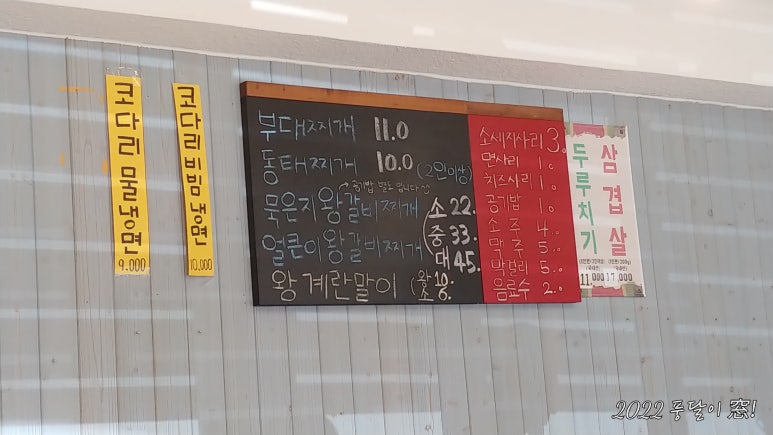 코다리 물냉면
9.000
코다리 비빔냉면
10.000
부대찌개 11.0
동태찌개 10.0 (2인이상)
공기밥 별도 입니다
묵은지왕갈비찌개 소 22.
얼큰이왕갈비찌개 중 33.
대 45.
왕계란말이 (왕 10.
소 6.
소세지사리 3.0
면사리 1.0
치즈사리 1.0
공기밥 1.0
소주 4.0
맥주 5.0
막걸리 5.0
음료수 2.0
두루치기
11.000
삼겹살
17.000
2022 풍달이 窓!